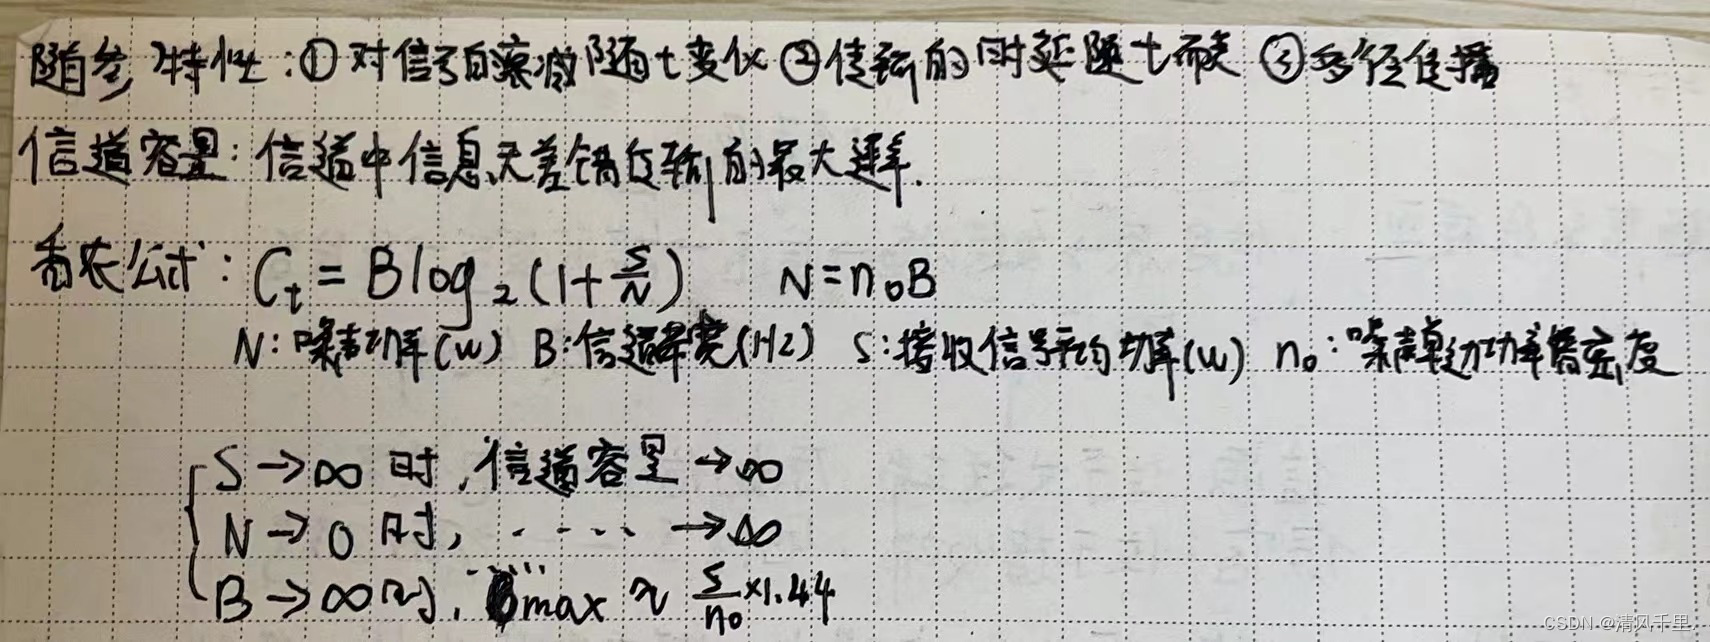 随参特性:①对信号的衰减随t变化 ②传输的时延随t而变 ③多径传播
信道容量:信道中信息无差错传输的最大速率.
香农公式:Ct = B log₂(1+S/N) N=n₀B
N:噪声功率(W) B:信道带宽(Hz) S:接收信号平均功率(W) n₀:噪声单边功率谱密度
S→∞时,信道容量→∞
N→0时,·····→∞
B→∞时,·····max ≈ S/n₀×1.44
CSDN @清风千里.